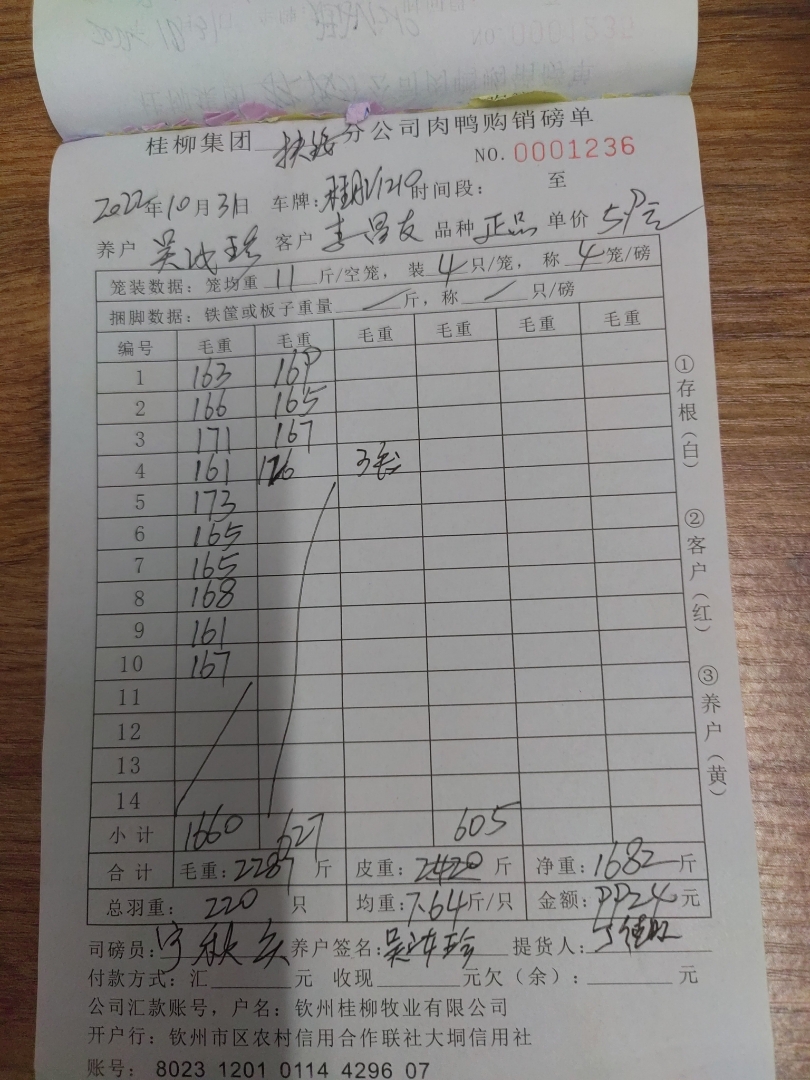 桂柳集团 分公司肉鸭购销磅单
NO. 0001236
2022年10月31日 车牌: 1210 时间段: 至
养户 吴 珍 客户 李昌友 品种 正品 单价 5.9元
笼装数据: 笼均重 11 斤/空笼, 装 4 只/笼, 称 4 笼/磅
捆脚数据: 铁筐或板子重量 / 斤, 称 / 只/磅
编号 毛重 毛重 毛重 毛重 毛重 毛重
1 163 169
2 166 165
3 171 167
4 161 126 3
5 173
6 165
7 165
8 168
9 161
10 167
11
12
13
14
小计 1660 627 605
合计 毛重: 2287 斤 皮重: 斤 净重: 1682 斤
总羽重: 220 只 均重: 7.64 斤/只 金额: 9924 元
司磅员: 养户签名: 吴 珍 提货人:
付款方式: 汇 元 收现 元欠(余): 元
公司汇款账号, 户名: 钦州桂柳牧业有限公司
开户行: 钦州市区农村信用合作联社大垌信用社
账号: 8023 1201 0114 4296 07
①存根(白)
②客户(红)
③养户(黄)